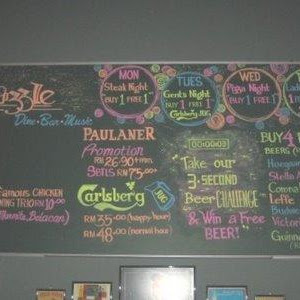 Dizzle
Dine • Bar • Music
MON
Steak Night
BUY 1 FREE 1
TUES
Gents Night
BUY 1 FREE 1
Carlsberg JUG
WED
Pizza Night
BUY 1 FREE 1
Ladi
PAULANER
Promotion
RM 26.90+
5 BTLS RM 75.00
Famous Chicken
RM 10.00
Minnits, Belacan)
Carlsberg JUG
RM 35.00 (happy hour)
RM 48.00 (normal hour)
00:00:03
Take our
3-SECOND
Beer CHALLENGE
& Win a Free
BEER!
BUY 4
BEERS
Hoega
Stella A
Corona
Leffe
Budw
Victor
Guinn